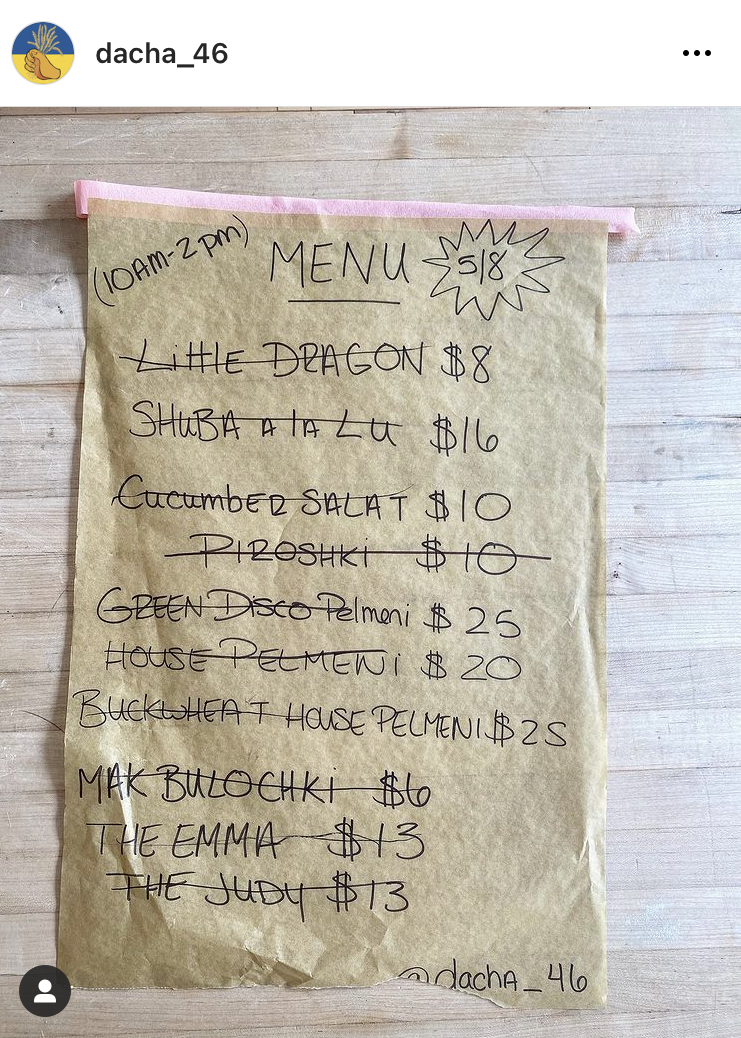 dacha_46
(10AM-2pm)
MENU
5/8
LittlE DRAGON $8
SHuBA A lA LU $16
CucumbER SALAT $10
PIROSHKi $10
GREEN DiSCO Pelmeni $25
HOUSE PELMENi $20
BUCKWHEAT HOUSE PELMENI $25
MAK BULOCHKi $6
THE EMMA $13
THE JUDY $13
@dachA_46